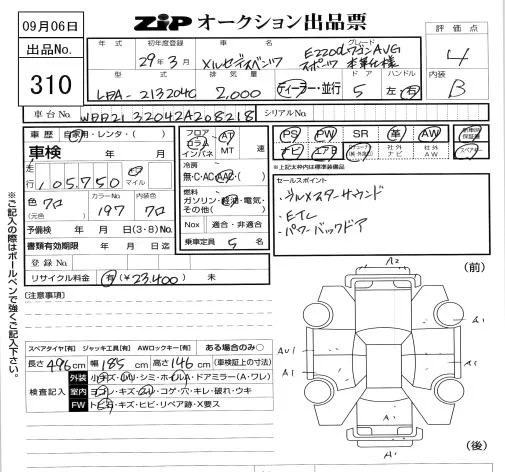 09月06日
ZiP オークション出品票
出品No.
310
年 式
初年度登録
車 名
グレード
評価点
29年3月
メルセデスベンツ
E220dワゴンAVG
スポーツ 本革仕様
4
型 式
排気量
ドア
ハンドル
内装
LDA-213204C
2,000
ディーラー・並行
5
左・右
B
車台No.
WDD21 32042A208218
シリアルNo.
車歴
自家用・レンタ・( )
車検
年 月
走行
105,750
km
マイル
色
クロ
(元色)
カラーNo.
197
内装色
クロ
予備検 年 月 日(3・8)No.
書類有効期限 年 月 日迄
登録No.
リサイクル料金 有(¥23,400) 未
フロア
コラム
インパネ
AT
MT
速
冷房
無・C・AC・AAC・( )
燃料
ガソリン・軽油・電気・
その他( )
Nox 適合・非適合
乗車定員 5 名
PS
PW
SR
革
AW
新車時保証書
ナビ
エアB
社外
ナビ
社外
AW
スペアキー
※上記太枠内は標準装備品
セールスポイント
・ブルメスターサウンド
・ETC
・パワーバックドア
(注意事項)
スペアタイヤ[有] ジャッキ工具[有] AWロックキー[有] ある場合のみ○
長さ 496cm 幅 185cm 高さ 146cm (車検証上の寸法)
検査記入
外装 小キズ・小ハリ・シミ・ホイルA・ドアミラー(A・ワレ)
室内 ヨゴレ・キズ・スレ・コゲ・穴・キレ・破れ・ウキ
FW トビ石・キズ・ヒビ・リペア跡・X要ス
※ご記入の際はボールペンで強くご記入下さい。
(前)
A2
A1
AU1
A1
A1
A1
A1
(後)